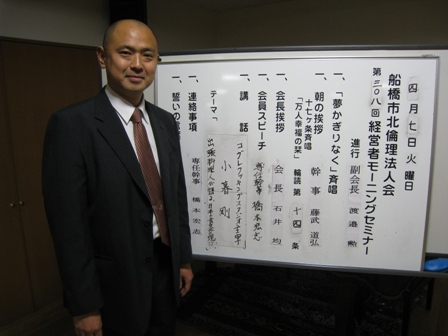 四月七日火曜日
船橋市北倫理法人会
第三〇八回 経営者モーニングセミナー
進行 副会長 渡邉 勲
一、「夢かぎりなく」斉唱
一、朝の挨拶 幹事 藤武 道弘
十七ヶ条斉唱
「万人幸福の栞」 輪読 第十四条
一、会長挨拶 会長 石井 均
一、会員スピーチ 専任幹事 橋本宏志
一、講話
小喜剛
テーマ「
一、連絡事項 専任幹事 橋本 宏志
一、誓いの